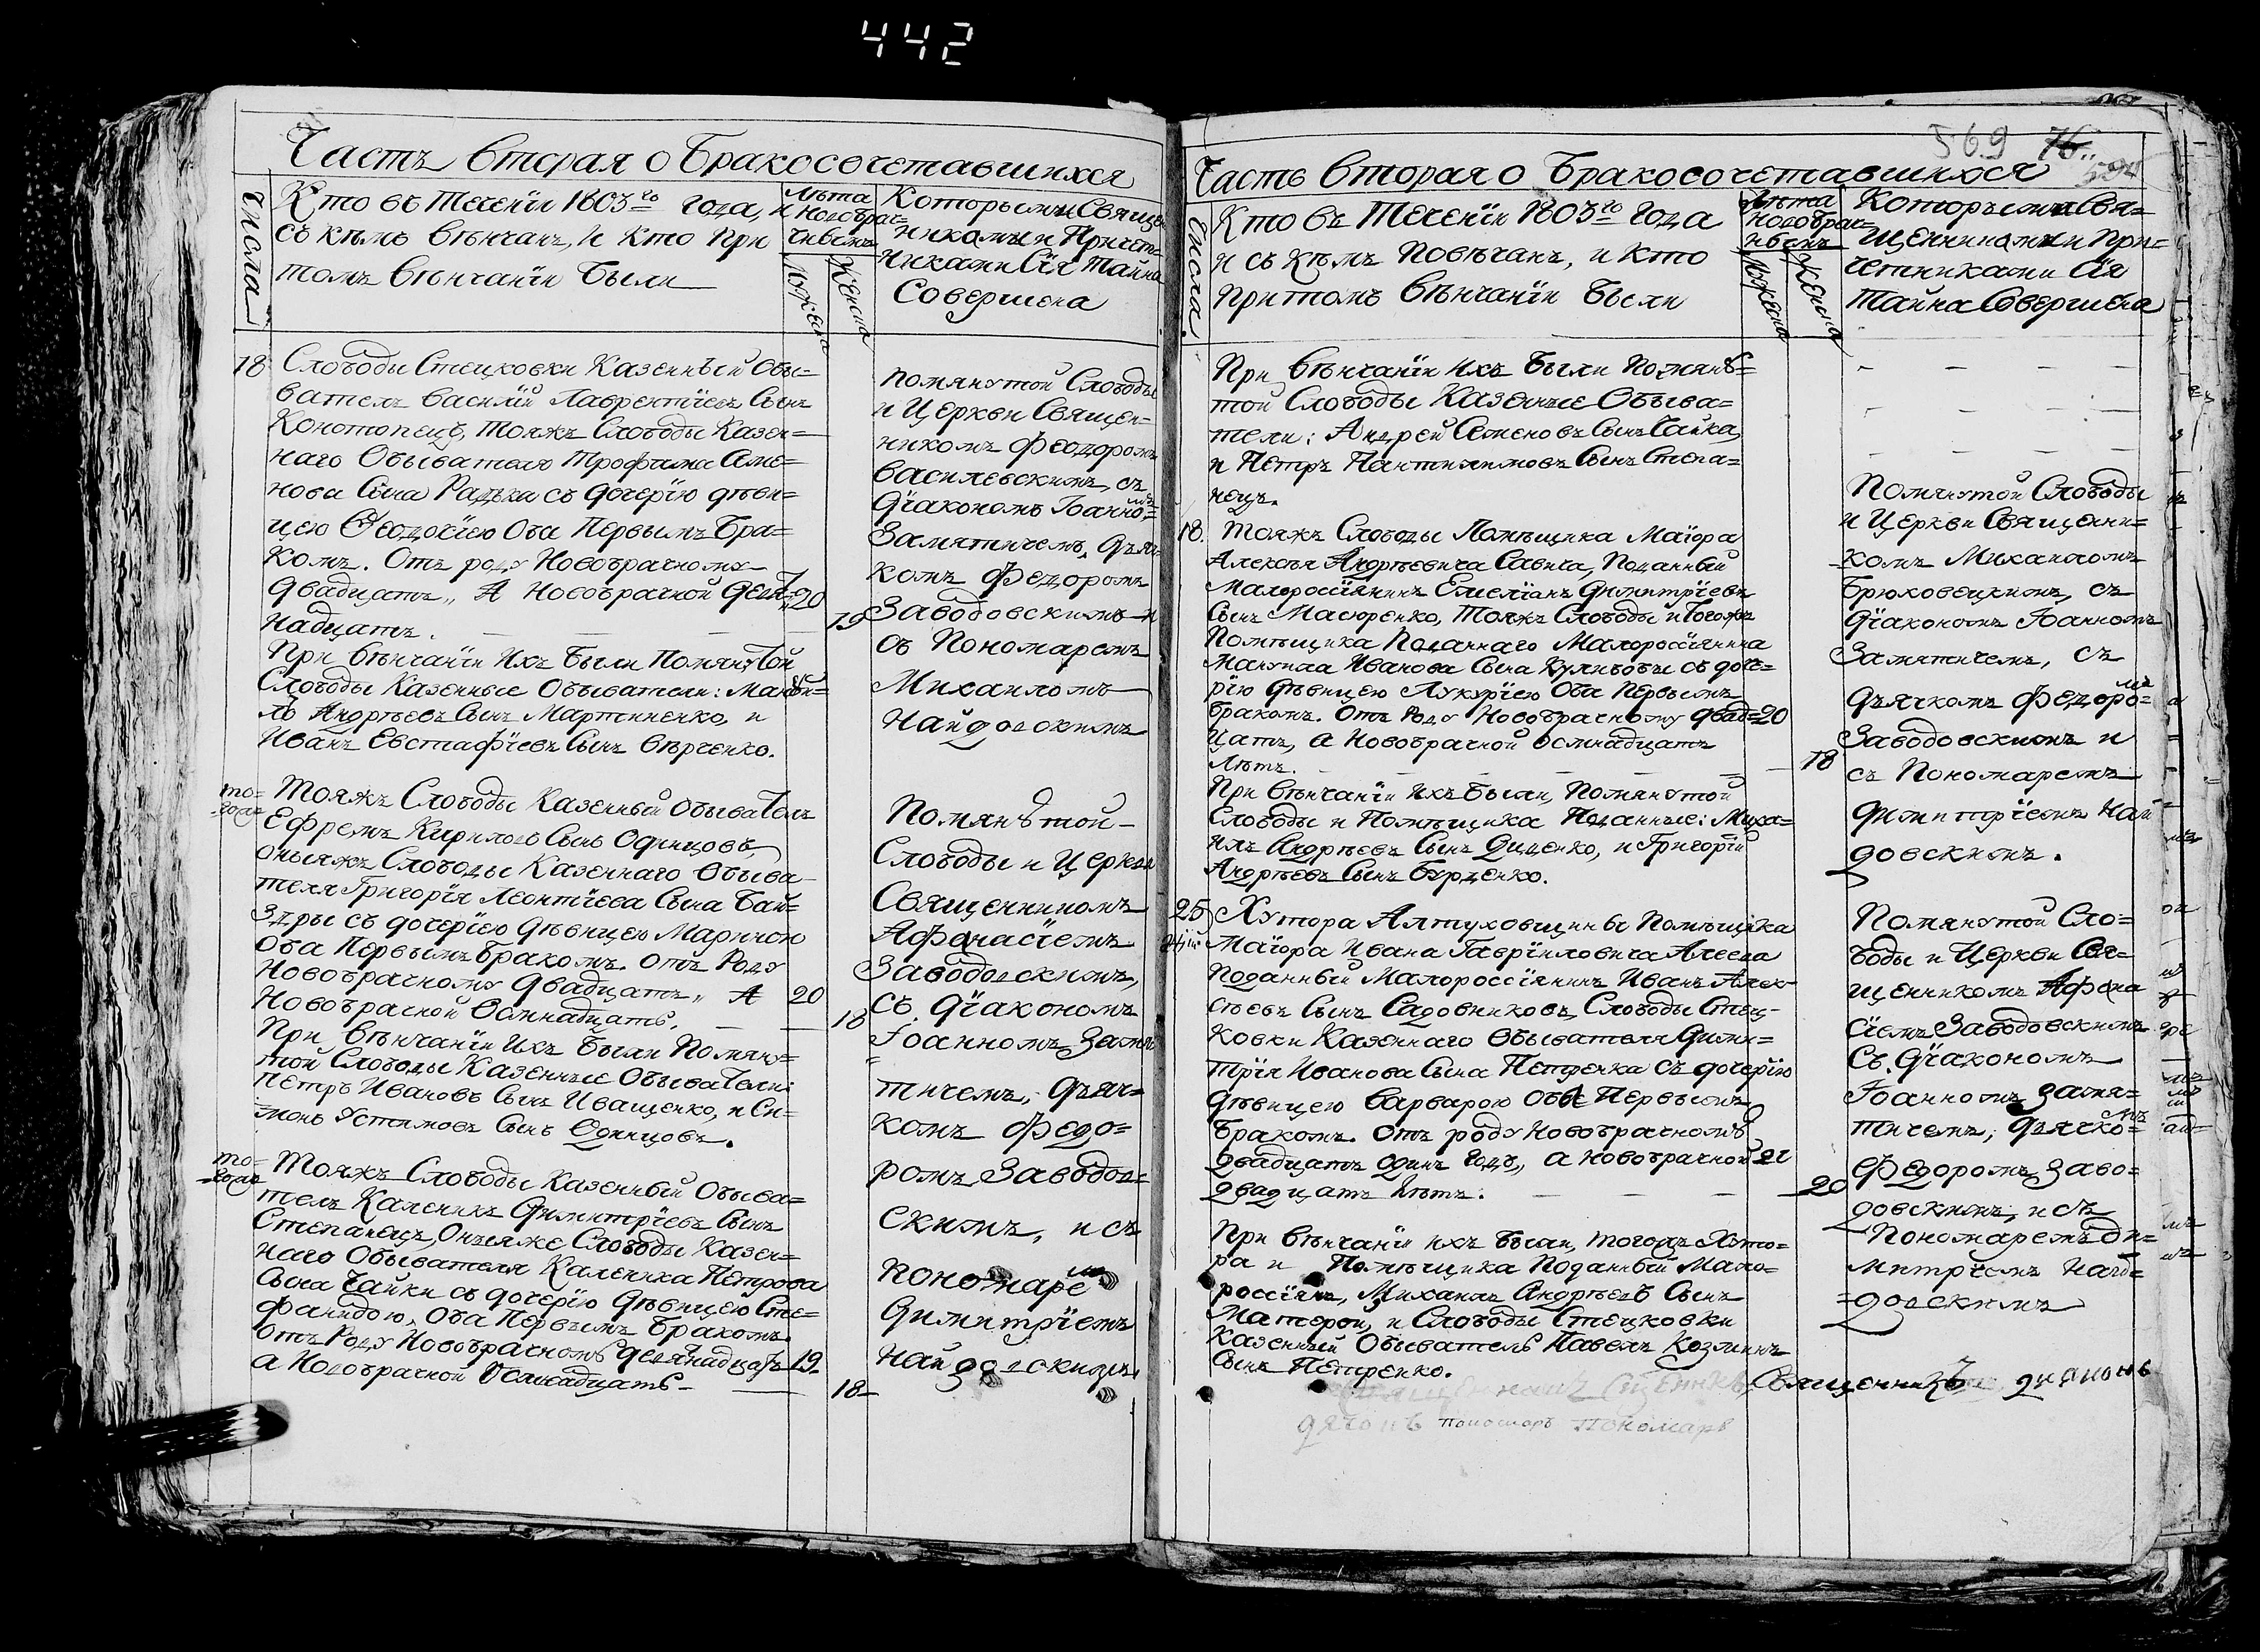 442
Часть вторая о Бракосочетавшихся
Числа
Кто въ теченіи 1803го года, и
съ кѣмъ вѣнчанъ, и кто при
томъ вѣнчаніи были
Лѣта
новобрач=
ныхъ
Мужеска
Женска
Которымъ Священ
никомъ и Причет
никами Сія тайна
Совершена
18 Слободы Стецковки Казенный Обы=
ватель Василій Лаврентіевъ Сынъ
Конотопецъ, тояжъ Слободы Казен=
наго Обывателя Трофима Семе=
нова Сына Радька съ дочерію дѣви=
цею Ѳеодосіею Оба Первымъ Бра=
комъ. Отъ роду Новобрачному
двадцать,, А Новобрачной девят= 20
надцать. 19
При вѣнчаніи ихъ были Помянутой
Слободы Казенные Обыватели: Мануй=
ло Андрѣевъ Сынъ Мартиненко, и
Иванъ Евстафіевъ Сынъ Вѣрченко.
помянутой Слободы
и Церкви Священ=
никомъ Феодоромъ
Василевскимъ, съ
Діакономъ Іоанномъ
Замятичемъ, Дья
комъ Федоромъ
Заводовскимъ и
съ Пономаремъ
Михаиломъ
Найдовскимъ
то=
=гожъ
Тояжъ Слободы Казенный Обыватель
Ефремъ Кириловъ Сынъ Одинцовъ,
оныяжъ Слободы Казеннаго Обыва
теля Григорія Леонтіева Сына Бай=
здры съ дочерію дѣвицею Мариною
Оба Первымъ Бракомъ. Отъ Роду
Новобрачному двадцать,, А 20
Новобрачной Осмнадцать. 18
При вѣнчаніи Ихъ были Помяну=
той Слободы Казенные Обыватели:
Петръ Ивановъ Сынъ Иващенко, и Си=
монъ Устимовъ Сынъ Одинцовъ.
Помянутой
Слободы и Церкви
Священникомъ
Афонасіемъ
Заводовскимъ,
съ Діакономъ
Іоанномъ Замя
тичемъ, Дьяч=
комъ Федо=
ромъ Заводов=
скимъ, и съ
пономаремъ
Димитріемъ
Найдовскимъ
то=
=гожъ
Тояжъ Слободы Казенный Обыва=
тель Каленикъ Димитріевъ Сынъ
Степанецъ, Оныяже Слободы Казен=
наго Обывателя Каленика Петрова
Сына Чайки съ дочерію Дѣвицею Сте=
фанидою, Оба Первымъ Бракомъ.
Отъ Роду Новобрачному девятнадцать 19.
а Новобрачной Осмнадцать 18
569 76
Часть вторая о Бракосочетавшихся
Числа.
Кто въ Теченіи 1803го Года
и съ кѣмъ Повѣчанъ, и кто
притомъ вѣнчаніи были
Лѣта
новобрач=
ныхъ
Мужеска
Женска
Которымъ Свя=
щенникомъ и При=
четниками Сія
Тайна Совершена
При вѣнчаніи ихъ были Помяну=
той Слободы Казенные Обыва=
тели: Андрей Семеновъ Сынъ Чайка,
и Петръ Пантилимовъ Сынъ Степа=
нецъ.
18. Тояжъ Слободы Помѣщика Маіора
Алексѣя Андрѣевича Савича, Поданный
Малороссіянинъ Емеліанъ Димитріевъ
Сынъ Масюренко, Тояжъ Слободы и Тогожъ
Помѣщика Поданнаго Малороссіянина
Мануила Иванова Сына Кулибобы съ доче=
рію дѣвицею Лукиріею Оба Первымъ
бракомъ. Отъ Роду Новобрачному двад= 20
цать, а Новобрачной Осмнадцать
Лѣтъ. 18
При вѣнчаніи ихъ были, Помянутой
Слободы и Помѣщика Поданные: Миха=
илъ Андрѣевъ Сынъ Диденко, и Григорій
Андрѣевъ Сынъ Бурденко.
Помянутой Слободы
и Церкви Священни=
комъ Михаиломъ
Брюховецкимъ, съ
Діакономъ Іоанномъ
Замятичемъ, съ
дьячкомъ Федоромъ
Заводовскимъ и
съ Пономаремъ
Димитріемъ Най
довскимъ.
25 Хутора Алтуховщины Помѣщика
Маіора Ивана Гавриловича Алеева
Поданный Малороссіянинъ Иванъ Алек
сѣевъ Сынъ Садовниковъ, Слободы Стец-
ковки Казеннаго Обывателя Дими=
трія Иванова Сына Петренка съ дочерію
Дѣвицею Варварою Оба Первымъ
бракомъ. Отъ роду Новобрачному
двадцать одинъ годъ,, а новобрачной 21
двадцать лѣтъ. 20
При вѣнчаніи ихъ были, тогожъ Хуто=
ра и Помѣщика Поданный Мало=
россіянъ, Михаилъ Андрѣевъ Сынъ
Матерой, и Слободы Стецковки
Казенный Обыватель Павелъ Козминъ
Сынъ Петренко.
Помянутой Сло=
боды и Церкви Свя=
щенникомъ Афона
сіемъ Заводовскимъ
Съ Діакономъ
Іоанномъ Замя=
тичемъ, дьячкомъ
Федоромъ Заво=
довскимъ, и съ
Пономаремъ Ди=
митріемъ Най=
=довскимъ
Священникъ дияконъ
дячокъ пономарь пономарь